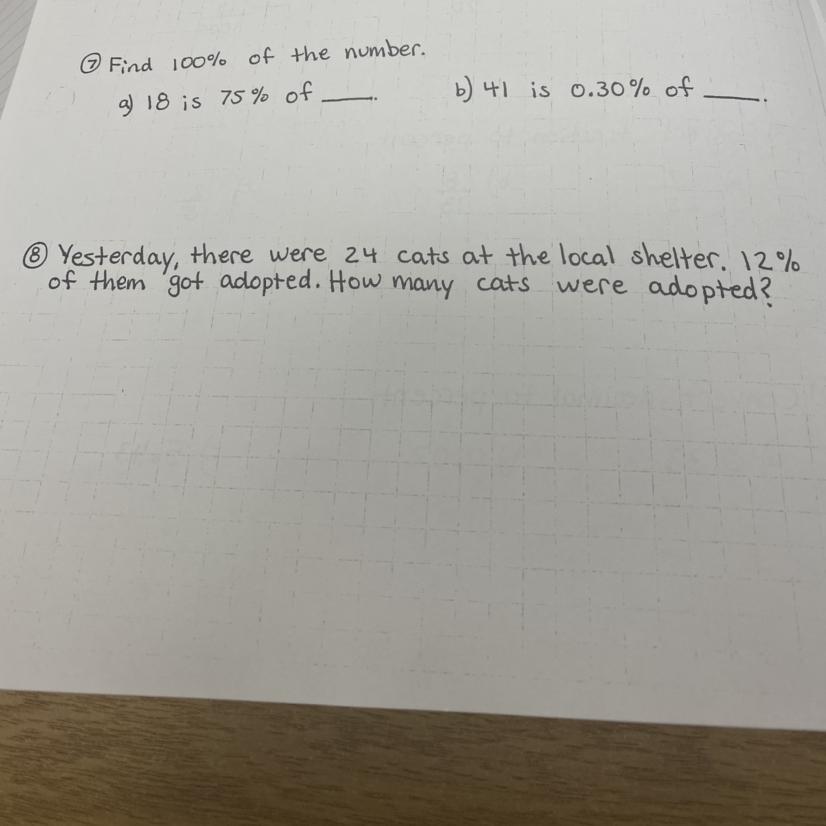 ⑦ Find 100% of the number.
a) 18 is 75% of ____. b) 41 is 0.30% of ____.
⑧ Yesterday, there were 24 cats at the local shelter. 12%
of them got adopted. How many cats were adopted?